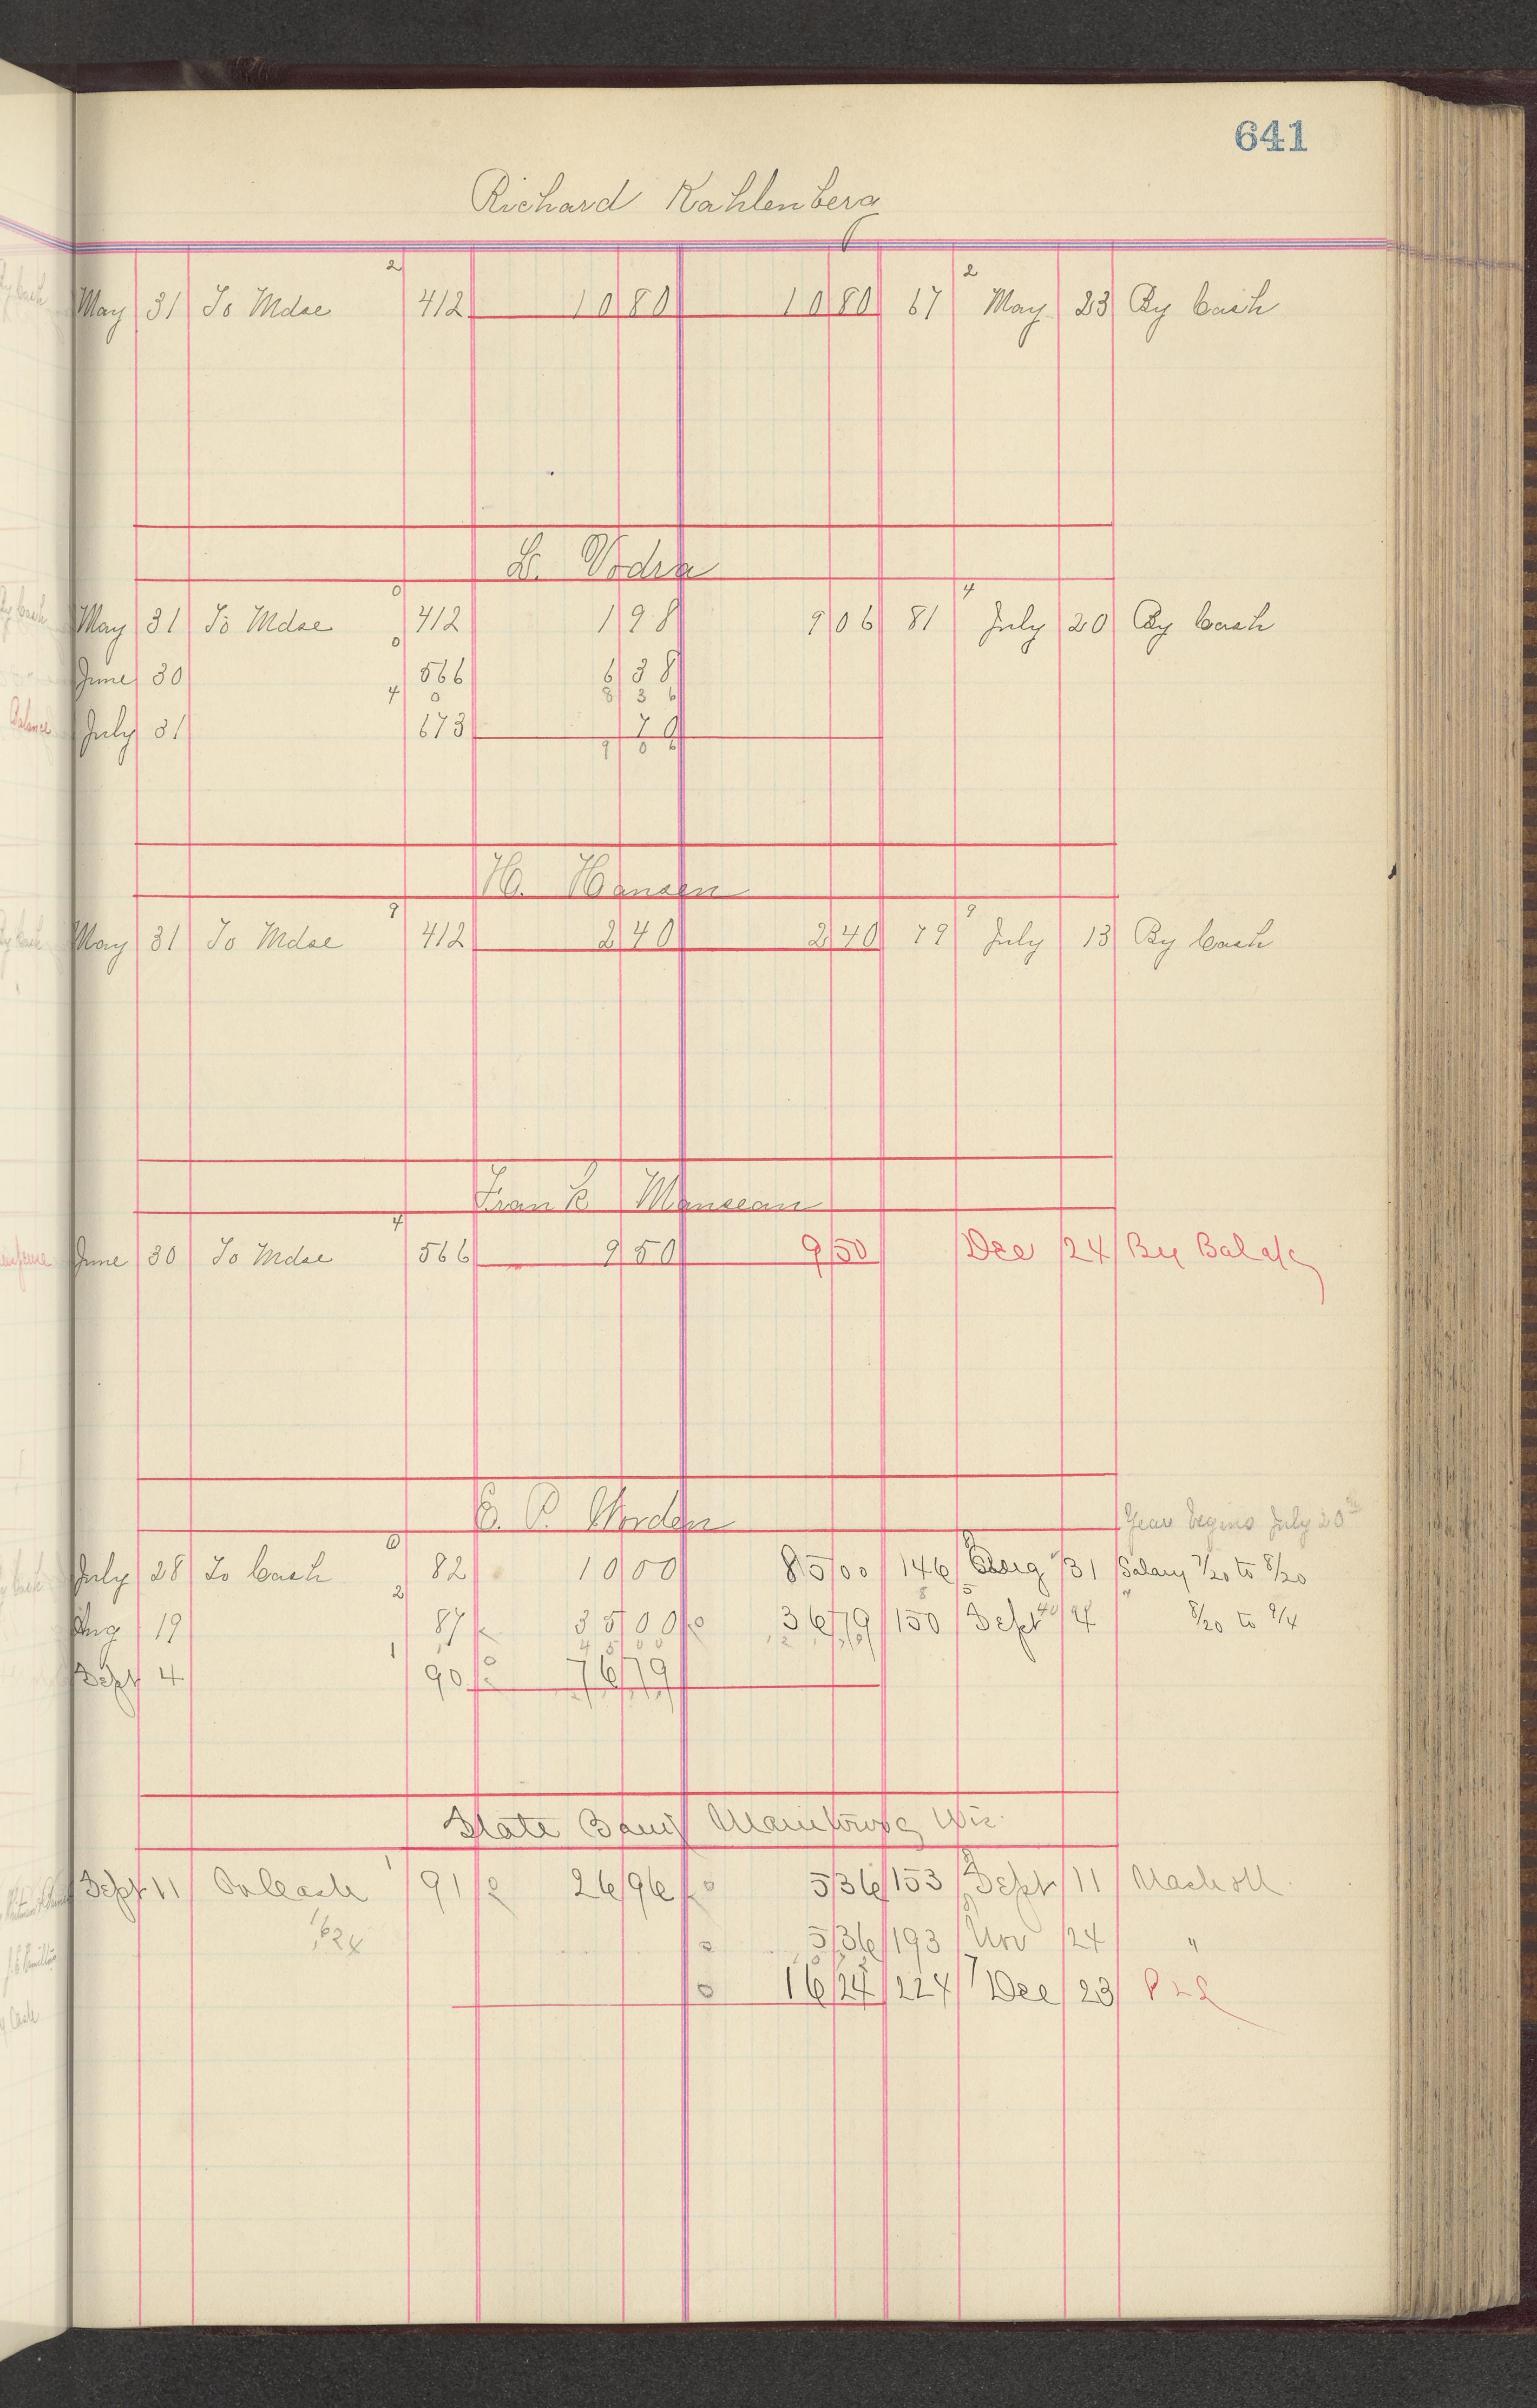 641
Richard Kahlenberg
2 2
May 31 To Mdse 412 10 80 10 80 67 May 23 By Cash
L. Vodra
0 4
May 31 To Mdse 412 1 98 9 06 81 July 20 By Cash
0
June 30 566 6 38
4 0 8 3 6
July 31 673 70
9 0 6
H. Hansen
9 9
May 31 To Mdse 412 2 40 2 40 79 July 13 By Cash
Frank Manseau
4
June 30 To Mdse 566 9 50 9 50 Dec 24 By Bal a/c
E. P. Worden Year begins July 20th
0
July 28 To Cash 82 10 00 85 00 146 Aug 31 Salary 7/20 to 8/20
2
Aug 19 87 35 00 36 79 150 Sept 4 " 8/20 to 9/4
1 45 00
Sept 4 90 76 79
State Bank Manitowoc Wis.
1
Sept 11 Cash 91 26 96 5 36 153 Sept 11
16 24 5 36 193 Nov 24 "
16 24 224 7 Dec 23 P & L